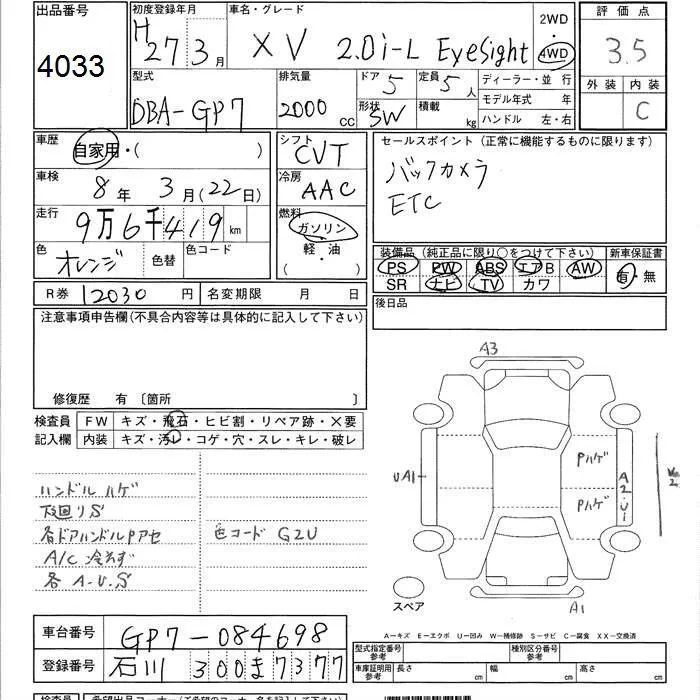 出品番号
4033
初度登録年月
H27 3月
車名・グレード
XV 2.0i-L EyeSight
2WD
4WD
評価点
3.5
外装 内装
C
型式
DBA-GP7
排気量
2000 CC
ドア 5
形状 SW
定員 5人
積載 kg
ディーラー・並行
モデル年式 年
ハンドル 左・右
車歴
自家用・( )
車検
8年 3月(22日)
走行
9万6千419km
色
オレンジ
色替
色コード
シフト
CVT
冷房
AAC
燃料
ガソリン
軽・油
( )
セールスポイント(正常に機能するものに限ります)
バックカメラ
ETC
装備品(純正品に限り○をつけて下さい)
PS PW ABS エアB AW
SR ナビ TV カワ
新車保証書
有・無
後日品
R券 12030円
名変期限 月 日
注意事項申告欄(不具合内容等は具体的に記入して下さい)
修復歴 有〔箇所 〕
検査員
記入欄
FW キズ・飛石・ヒビ割・リペア跡・X要
内装 キズ・汚レ・コゲ・穴・スレ・キレ・破レ
ハンドルハゲ
下廻りS
各ドアハンドルPアセ
A/C 冷えず
各 A.U.S
色コード G2U
A3
UA1
Pハゲ
Pハゲ
A2・U1
A1
スペア
A-キズ E-エクボ U-凹み W-補修跡 S-サビ C-腐食 XX-交換済
車台番号
GP7-084698
登録番号
石川 300ま7377
型式指定番号
参考
種別区分番号
参考
車庫証明用
参考
長さ 幅 高さ
検査員